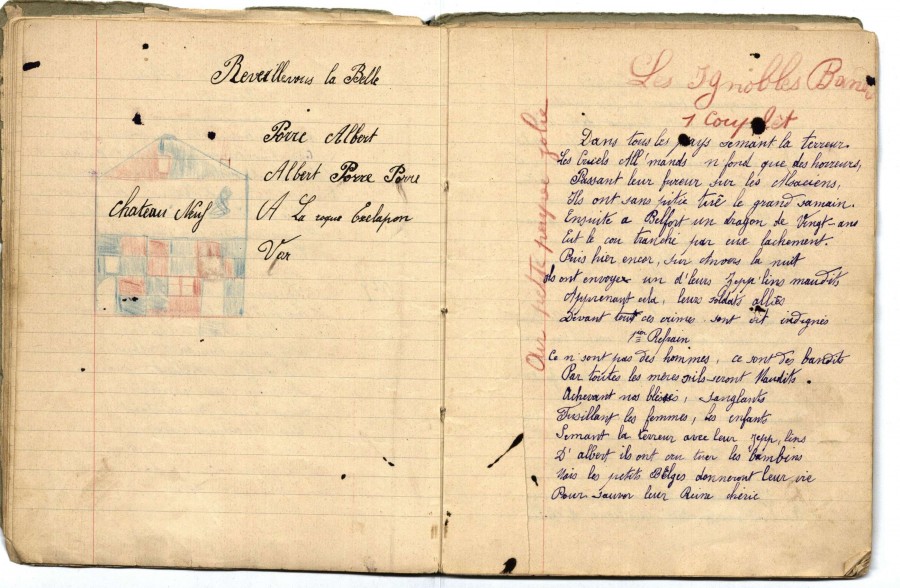 Reveillevous la Belle
Porre Albert
Albert Porre Porre
Chateau Neuf
A La roque Esclapon
Var
Les Ignobles Bandi
1 Couplèt
Air petite poupée jolie
Dans tous les pays semant la terreur.
Les Cruels All'mands n fond que des horreurs,
Passant leur fureur sur les Alsaciens,
Ils ont sans pitié tiré le grand samain.
Ensuite a Belfort un dragon de Vingt-ans
Eut le cou tranché par eux lachement.
Puis hier encor, sur Anvers la nuit
ils ont envoyez un d'leurs Zepp'lins maudits
Apprenant cela, leurs soldats alliés
Devant tout ces crimes sont indignés
1er Refrain
Ce n'sont pas des hommes, ce sont des bandits
Par toutes les mères ils seront Maudits.
Achevant nos blessés, sanglants
Fusillant les femmes, les enfants
Semant la terreur avec leur Zepp,lins
D'albert ils ont cru tuer les bambins
Mais les petits Bèlges donneront leur vie
Pour sauver leur Reine chérie